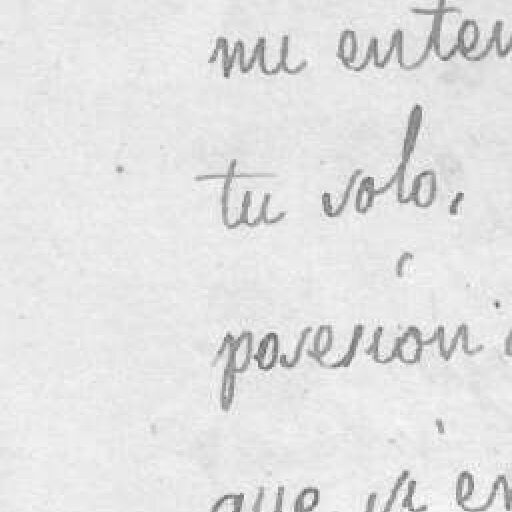 mi enten
tu solo,
posesión
que si en